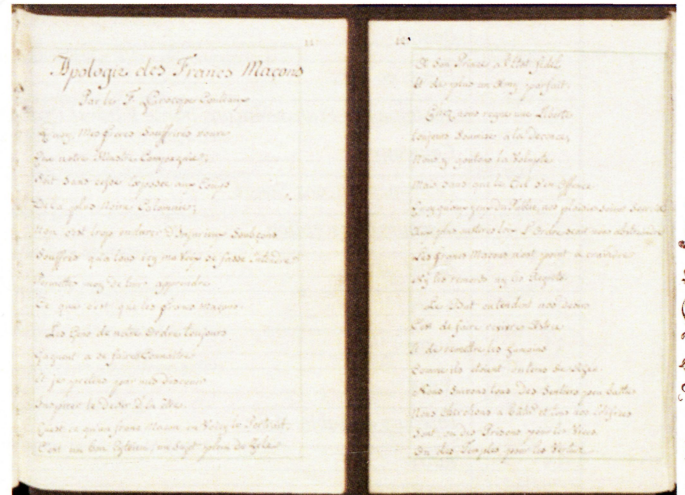 Apologie des Francs Maçons
Par le F.
Quoy, mes freres souffrons nous
Que notre Compagnie,
Soit sans cesse exposée aux Coups
De la plus Noire Calomnie;
Non c'est trop endurer d'injurieux soubçons
Souffrés qu'à tous icy ma Voix se fasse entendre
Permettés moy de leur apprendre
Ce que c'est que les francs maçons.
Les Gens de notre Ordre toujours
Gagnent a se faire Connaître
Et je pretens par mes discours
Inspirer le desir d'En être
Qu'est ce qu'un franc Macon en Voicy le Portrait:
C'est un bon Citoien, un Sujet plein de Zele
22
A son Prince a l'Etat fidel
Et de plus un Amy parfait.
Chez nous regne une Liberté
toujours soumise a la Decence,
Nous y goutons la Volupté
Mais sans que le Ciel s'en Offence
Les francs Macons n'ont point a craindre
Ny les remords ny les Regrets.
Le But ou tendent nos desseins
C'est de faire revivre Astrée
Et de remettre les humains
Comme ils étoient du tems de Rhée.
Nous suivons tous des Sentiers peu battus
Nous cherchons a Batir et tous nos Edifices
Sont, ou des Prisons pour les Vices
Ou des Temples pour les Vertus